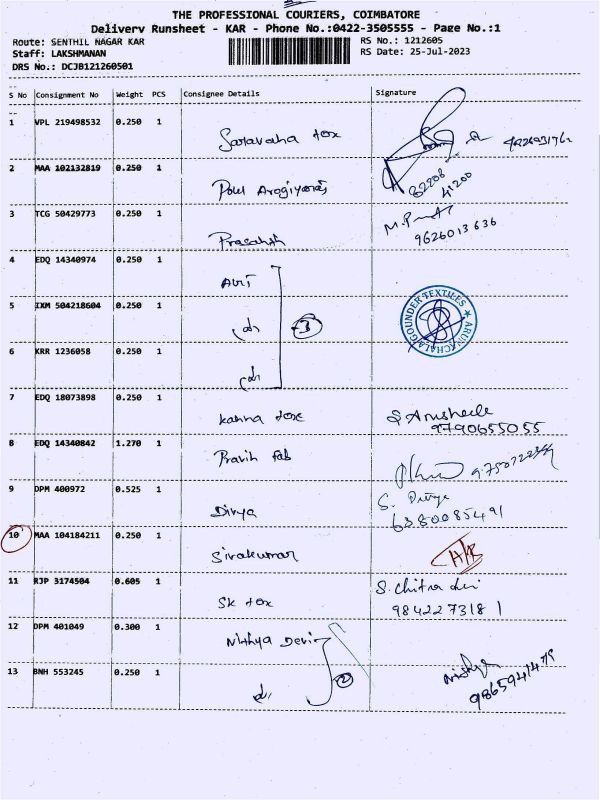 THE PROFESSIONAL COURIERS, COIMBATORE
Delivery Runsheet - KAR - Phone No.:0422-3505555 - Page No.:1
Route: SENTHIL NAGAR KAR RS No.: 1212605
Staff: LAKSHMANAN RS Date: 25-Jul-2023
DRS No.: DCJB121260501
S No Consignment No Weight PCS Consignee Details Signature
1 VPL 219498532 0.250 1
Saravana tex
2 MAA 102132819 0.250 1
82208
41200
3 TCG 50429773 0.250 1
Prasahsh
9626013636
4 EDQ 14340974 0.250 1
5 IXM 504218604 0.250 1
3
ARUNACHALA GOUNDER TEXTILES
6 KRR 1236058 0.250 1
7 EDQ 18073898 0.250 1
Kanna tex
9790655055
8 EDQ 14340842 1.270 1
Pravin Fab
9 DPM 400972 0.525 1
Divya S. Divya
6380085491
10 MAA 104184211 0.250 1
Sivakumar
11 RJP 3174504 0.605 1
SK tex S. Chitra Devi
9842273181
12 DPM 401049 0.300 1
Nithya Devi
13 BNH 553245 0.250 1
2
Nithya
9865941479